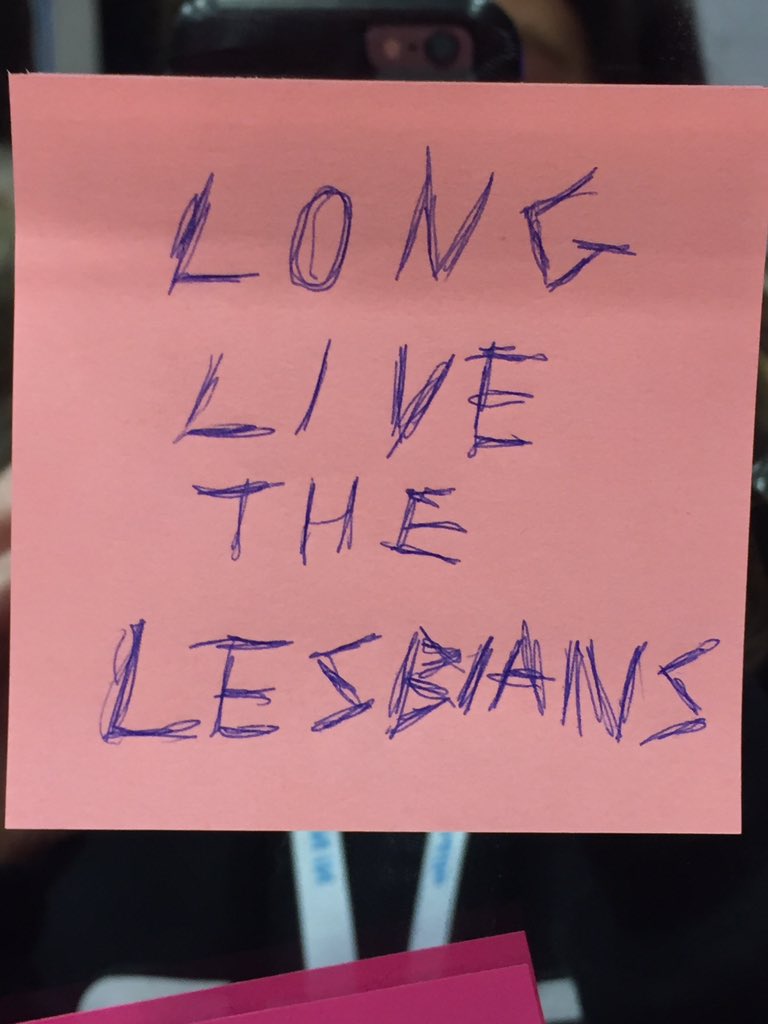 LONG
LIVE
THE
LESBIANS